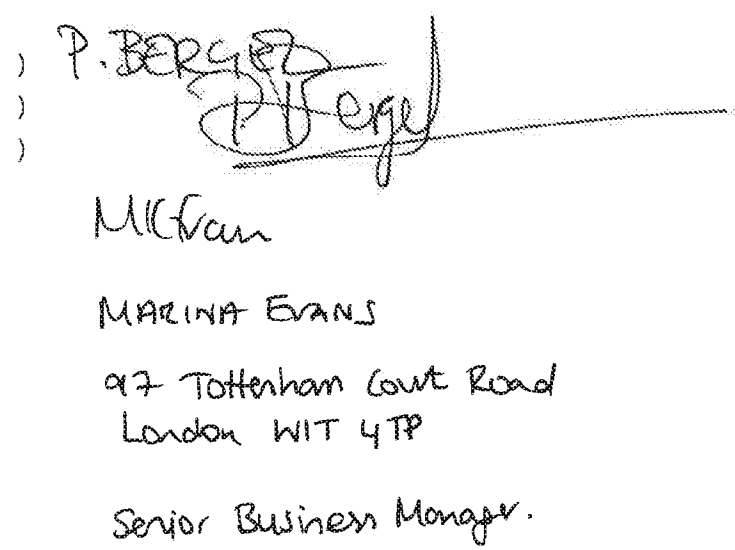 ) P. BERGEZ
)
)
MARINA EVANS
97 Tottenham Court Road
London W1T 4TP
Senior Business Manager.